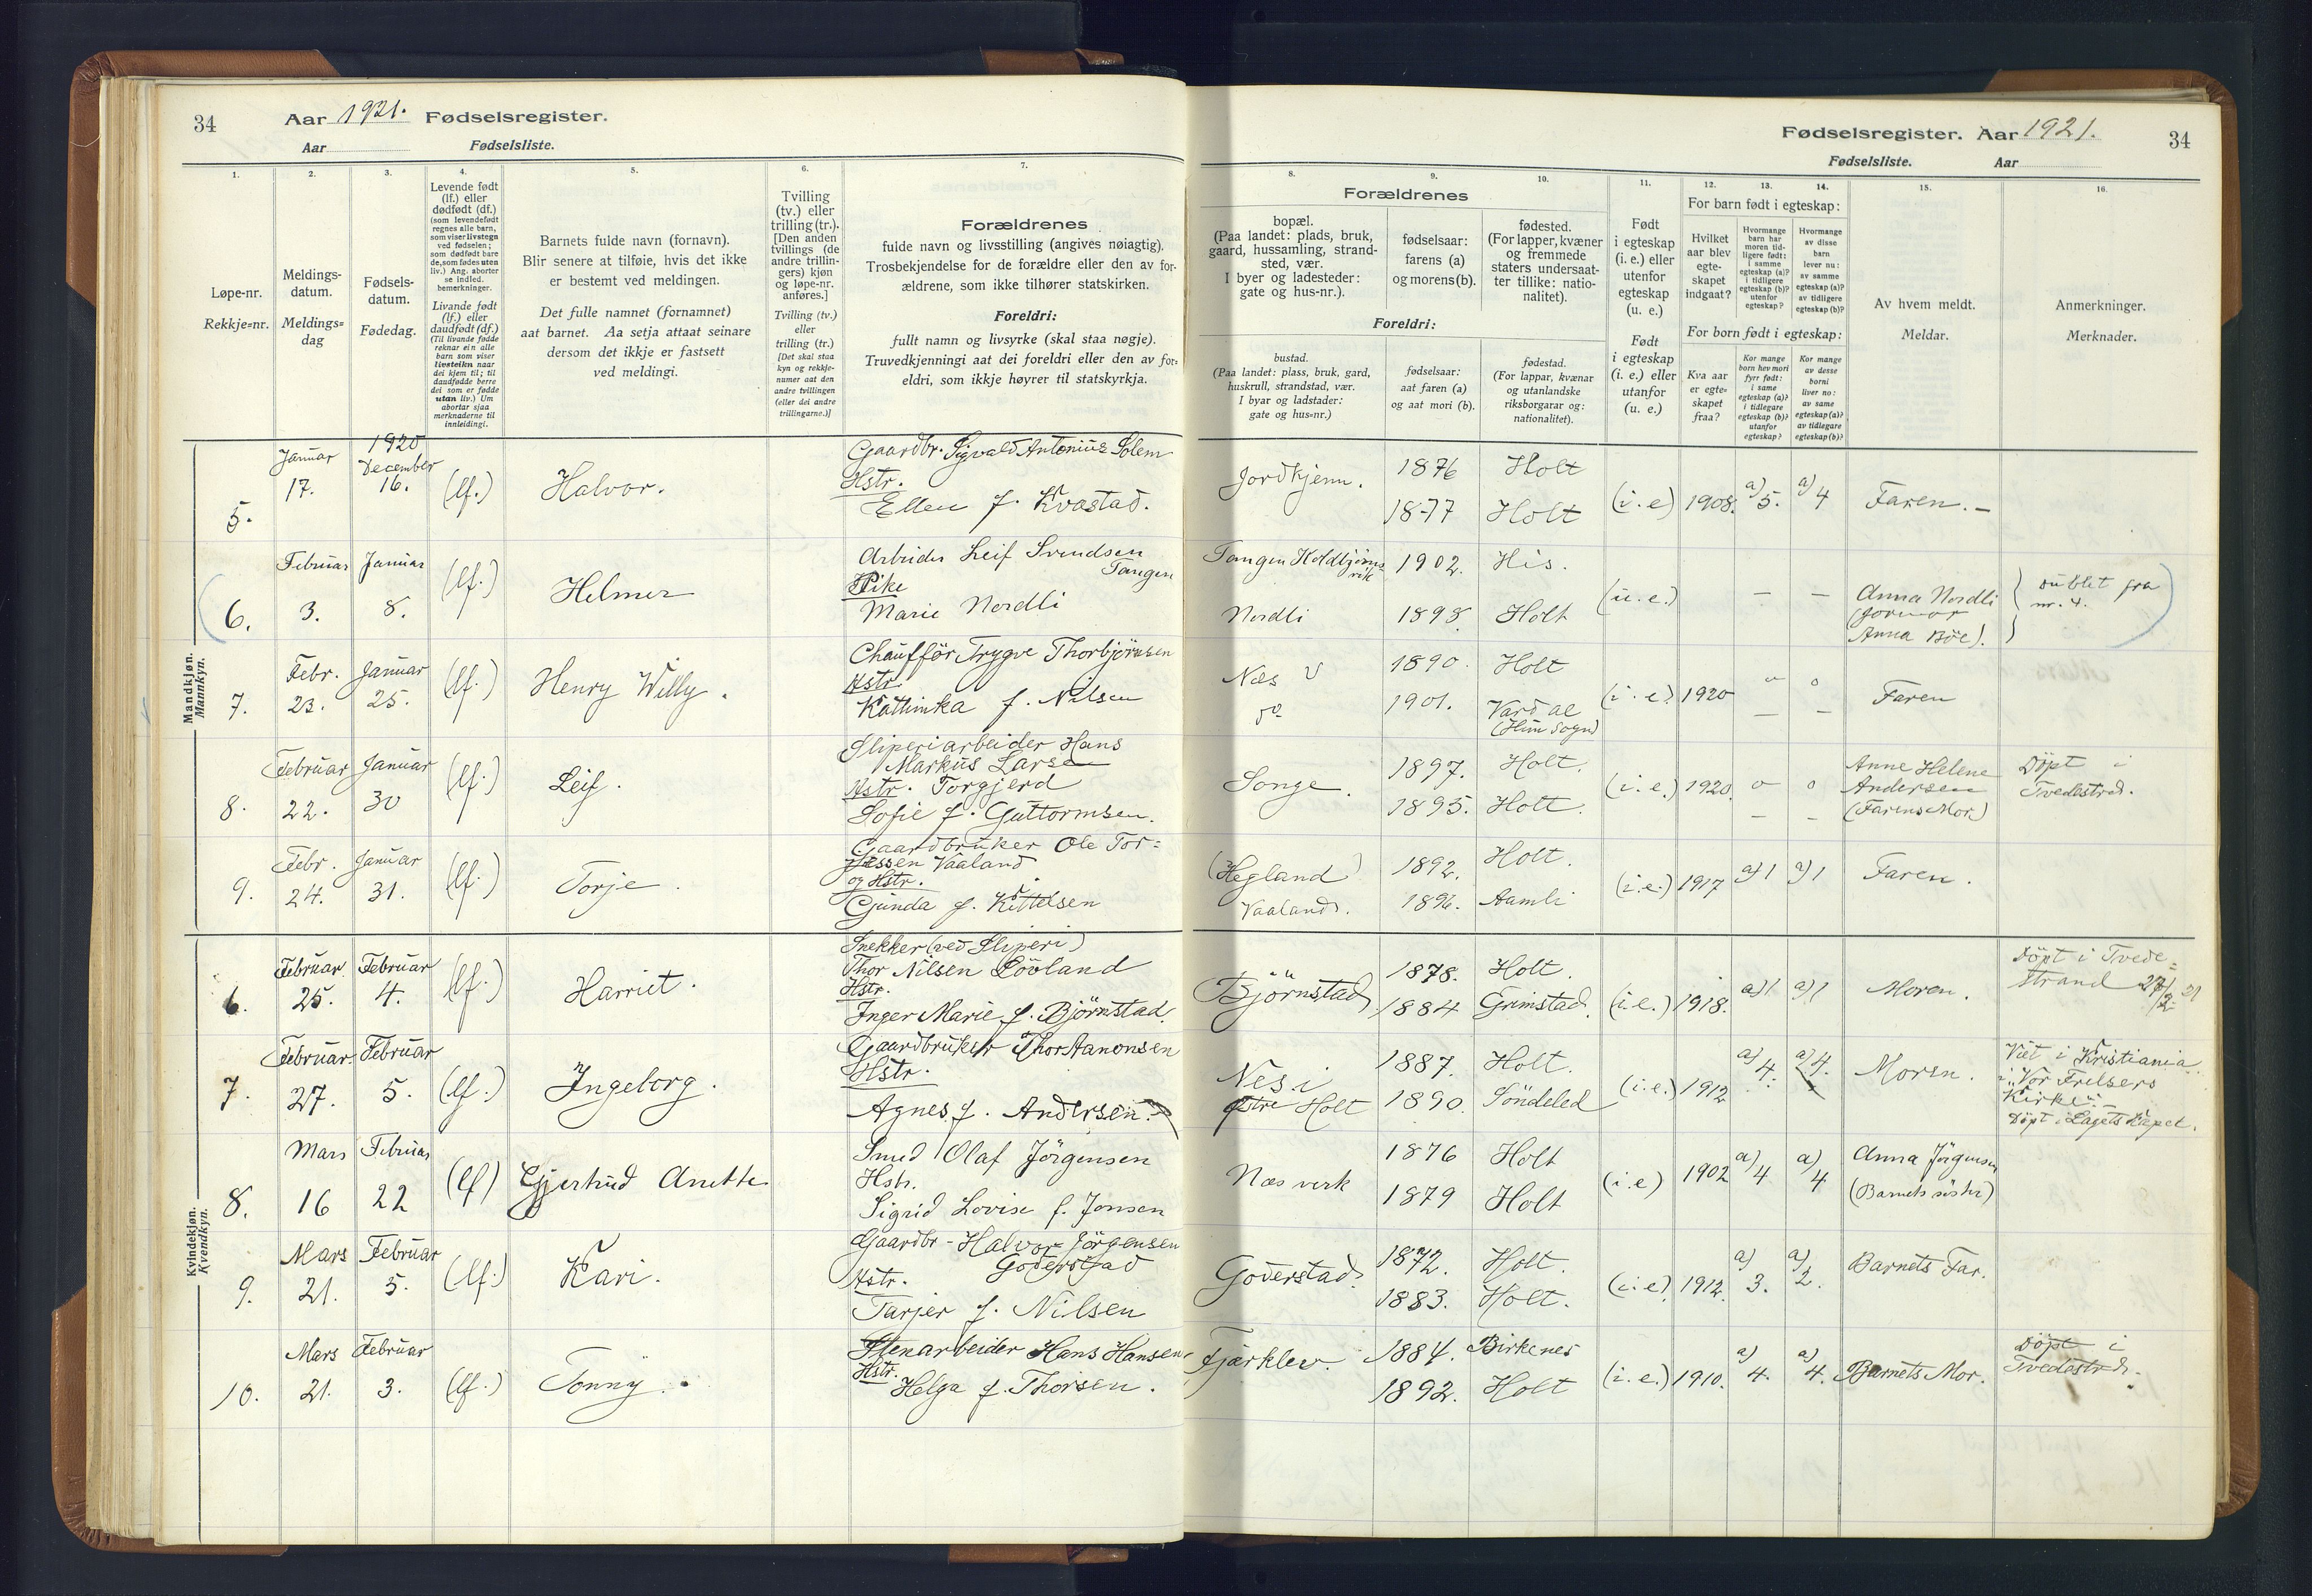 34
Aar 1921. Fødselsregister.
Aar Fødselsliste.
Fødselsregister. Aar 1921.
34
Fødselsliste. Aar
1.
Løpe-nr.
Rekkje=nr.
2.
Meldings-
datum.
Meldings=
dag
3.
Fødsels-
datum.
Fødedag.
4.
Levende født
(lf.) eller
dødfødt (df.)
(som levendefødt
regnes alle barn,
som viser livstegn
ved fødselen;
som dødfødt bare
de, som fødes uten
liv.) Ang. aborter
se indled.
bemerkninger.
Livande født
(lf.) eller
daudfødt (df.)
(Til livande fødde
reknar ein alle
barn som viser
livsteikn naar
dei kjem til; til
daudfødde berre
dei som er fødde
utan liv.) Um
abortar sjaa
merknaderne til
innleidingi.
5.
Barnets fulde navn (fornavn).
Blir senere at tilføie, hvis det ikke
er bestemt ved meldingen.
Det fulle namnet (fornamnet)
aat barnet. Aa setja attaat seinare
dersom det ikkje er fastsett
ved meldingi.
6.
Tvilling
(tv.) eller
trilling (tr.).
[Den anden
tvillings (de
andre trillin-
gers) kjøn
og løpe-nr.
anføres.]
Tvilling (tv.)
eller
trilling (tr.)
[Det skal staa
kyn og rekkje-
numer aat den
andre tvillingen
(eller dei andre
trillingarne.)]
7.
Forældrenes
fulde navn og livsstilling (angives nøiagtig).
Trosbekjendelse for de forældre eller den av for-
ældrene, som ikke tilhører statskirken.
Foreldri:
fullt namn og livsyrke (skal staa nøgje).
Truvedkjenningi aat dei foreldri eller den av for=
eldri, som ikkje høyrer til statskyrkja.
8.
Forældrenes
bopæl.
(Paa landet: plads, bruk,
gaard, hussamling, strand-
sted, vær.
I byer og ladesteder:
gate og hus-nr.).
Foreldri:
bustad.
(Paa landet: plass, bruk, gard,
huskrull, strandstad, vær.
I byar og ladstader:
gate og hus=nr.)
9.
fødselsaar:
farens (a)
og morens (b).
fødselsaar:
aat faren (a)
og aat mori (b).
10.
fødested.
(For lapper, kvæner
og fremmede
staters undersaat-
ter tillike: natio-
nalitet).
fødestad.
(For lappar, kvænar
og utanlandske
riksborgarar og:
nationalitet).
11.
Født
i egteskap
(i. e.) eller
utenfor
egteskap
(u. e.)
Født
i egteskap
(i. e.) eller
utanfor
(u. e.)
12.
For barn født i egteskap:
Hvilket
aar blev
egte-
skapet
indgaat?
For born født i egteskap:
Kva aar
er egte=
skapet
fraa?
13.
Hvormange
barn har
moren tid-
ligere født:
i samme
egteskap (a)?
i tidligere
egteskap (b)?
utenfor
egteskap?
Kor mange
born hev mori
fyrr født:
i same
egteskap (a)?
i tidlegare
egteskap (b)?
utanfor
egteskap?
14.
Hvormange
av disse
barn
lever nu:
av samme
egteskap (a)?
av tidligere
egteskap (b)?
Kor mange
av desse
borni
liver no:
av same
egteskap (a)?
av tidlegare
egteskap (b)?
15.
Av hvem meldt.
Meldar.
16.
Anmerkninger.
Merknader.
Mandkjøn.
Mannkyn.
5. Januar 17. 1920 December 16. (lf.) Halvor.
Gaardbr. Sigvald Antonius Solem
Hstr.
Ellen f. Kvastad.
Jordkjenn. 1876 Holt
1877 Holt (i.e) 1908. a) 5. a) 4 Faren. –
6. Februar 3. Januar 8. (lf.) Helmer
Arbeider Leif Svendsen
Tangen
Pike
Marie Nordli
Tangen 1902. His.
Nordli 1898. Holt (u.e.) – – Anna Nordli
(Jormor
Anna Böe).
dublet fra
nr. 4.
7. Febr. 23. Januar 25. (lf.) Henry Willy.
Chaufför Trygve Thorbjörnsen
Hstr.
Kathinka f. Nilsen
Næs 1890. Holt
do 1901. Vardal
(i.e.) 1920 o o
– – Faren
8. Februar 22. Januar 30 (lf.) Leif.
Sliperiarbeider Hans
Markus Larsen
Hstr. Torgjerd
Sofie f. Guttormsen.
Songe. 1897. Holt.
1895. Holt. (i.e.) 1920. o o
– –
Anne Helene
Andersen
(Farens Mor)
Döpt i
Tvedestrd.
9. Febr. 24. Januar 31. (lf.) Torje.
Gaardbruker Ole Tor=
jessen Vaaland
og Hstr.
Gunda f. Kittelsen
(Hegland) 1892. Holt.
Vaaland. 1896. Aamli (i.e.) 1917 a) 1 a) 1 Faren.
Kvindekjøn.
Kvendkyn.
6. Februar 25. Februar 4. (lf.) Harriet.
Snekker (ved Sliperi)
Thor Nilsen Lövland
Hstr.
Inger Marie f. Björnstad.
Björnstad 1878. Holt.
1884 Grimstad. (i.e.) 1918. a) 1 a) 1 Moren.
Döpt i Tvede=
strand 27/2 21
7. Februar 27. Februar 5. (lf.) Ingeborg.
Gaardbruker Thor Aanonsen
Hstr.
Agnes f. Andersen.
Nes i 1887. Holt.
østre Holt 1890. Söndeled (i.e.) 1912 a) 4. a) 4. Moren.
Viet i Kristiania
i "Vor Frelsers
Kirke".
8. Mars 16 Februar 22 (lf) Gjertrud Anette
Smed Olaf Jörgensen
Hstr.
Sigrid Lovise f. Jonsen
Næs verk 1876 Holt
1879 Holt (i.e) 1902 a) 4 a) 4
Anna Jörgensen
(Barnets söster)
9. Mars 21. Februar 5. (lf.) Kari.
Gaardbr – Halvor Jörgensen
Goderstad
Hstr.
Tarjer f. Nilsen
Goderstad. 1872. Holt.
1883. Holt. (i.e) 1912. a) 3. a) 2. Barnets Far.
10. Mars 21. Februar 3. (lf.) Tonny.
Stenarbeider Hans Hansen
Hstr.
Helga f. Thorsen.
Fjærklev. 1884. Birkenes
1892. Holt (i.e.) 1910. a) 4. a) 4. Barnets Mor.
Döpt i
Tvedestrd.